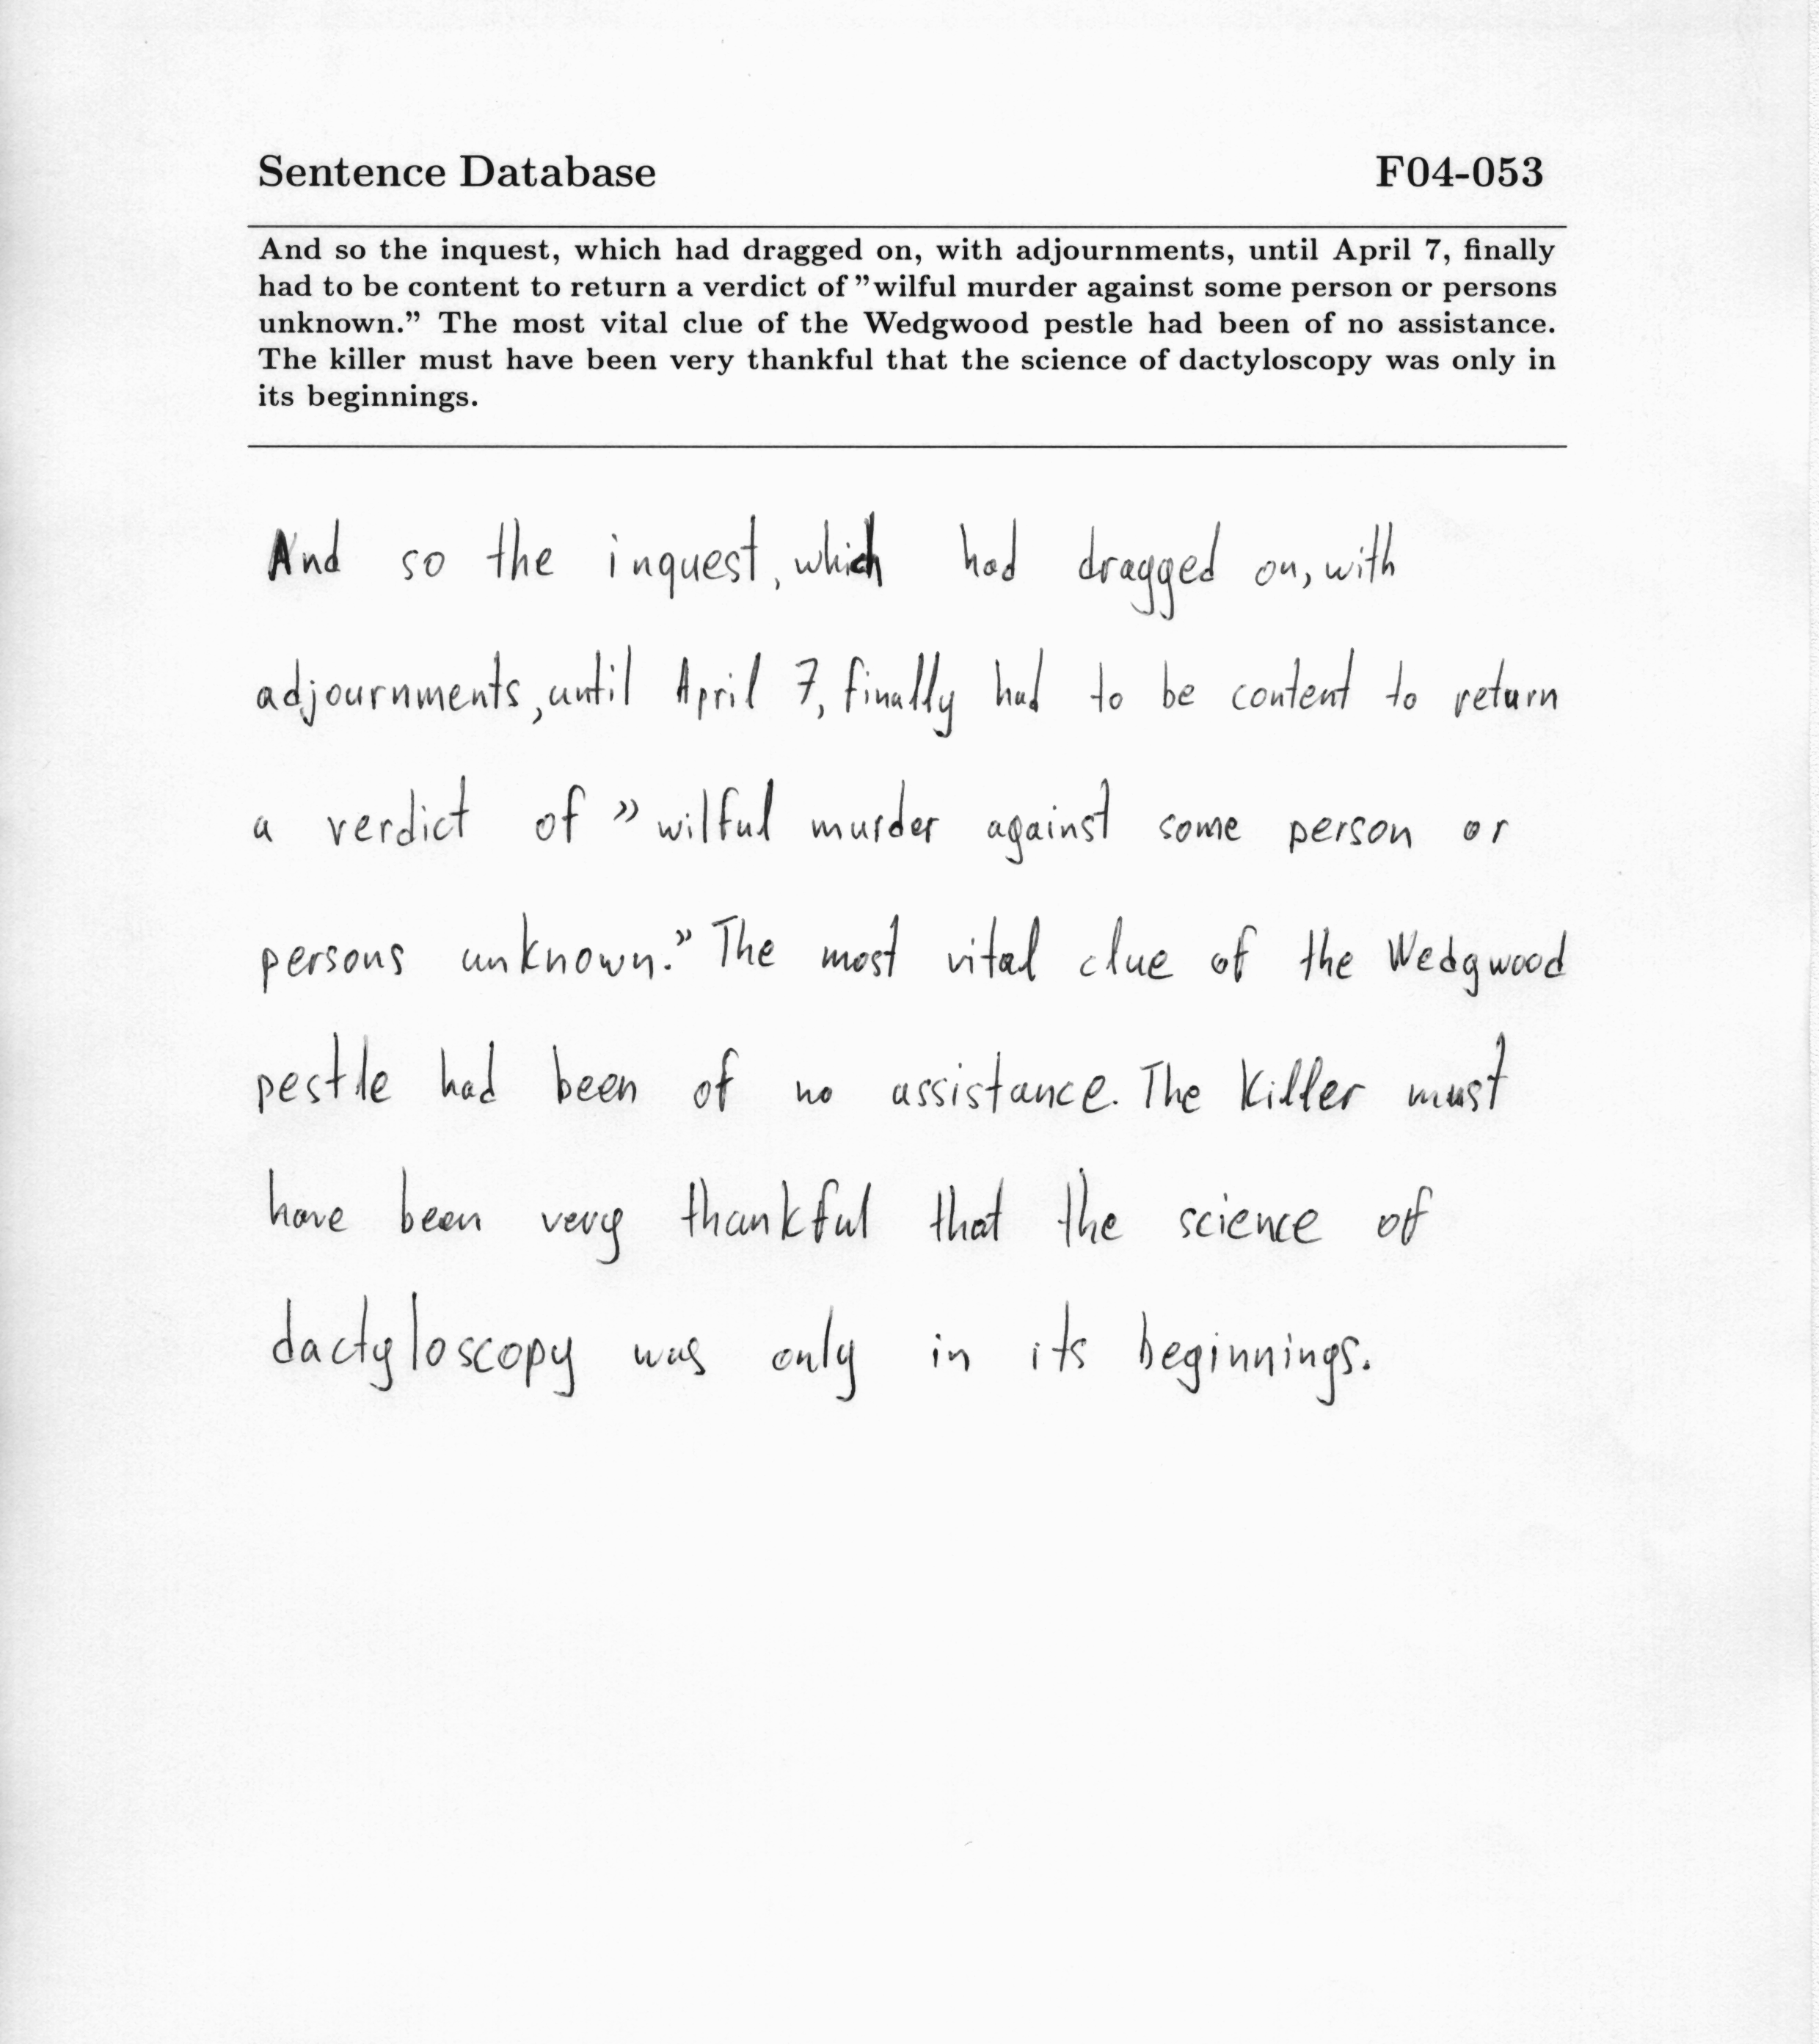 Sentence Database F04-053
And so the inquest, which had dragged on, with adjournments, until April 7, finally
had to be content to return a verdict of "wilful murder against some person or persons
unknown." The most vital clue of the Wedgwood pestle had been of no assistance.
The killer must have been very thankful that the science of dactyloscopy was only in
its beginnings.
And so the inquest, which had dragged on, with
adjournments, until April 7, finally had to be content to return
a verdict of "wilful murder against some person or
persons unknown." The most vital clue of the Wedgwood
pestle had been of no assistance. The killer must
have been very thankful that the science of
dactyloscopy was only in its beginnings.